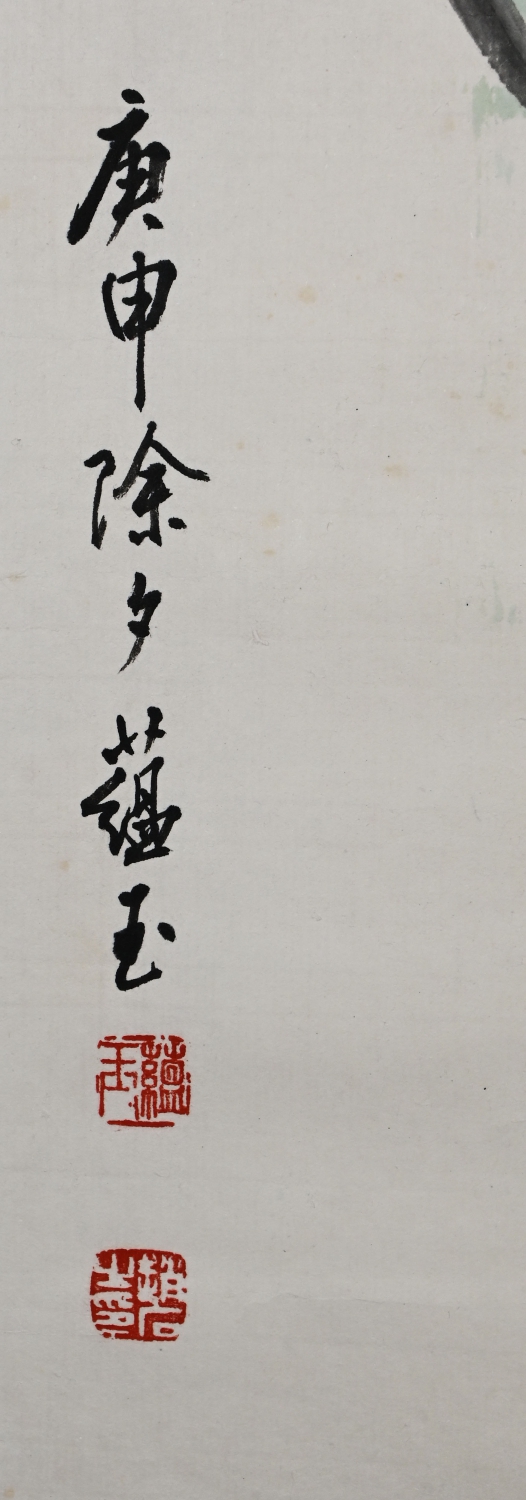 庚申除夕蘊玉
蘊玉